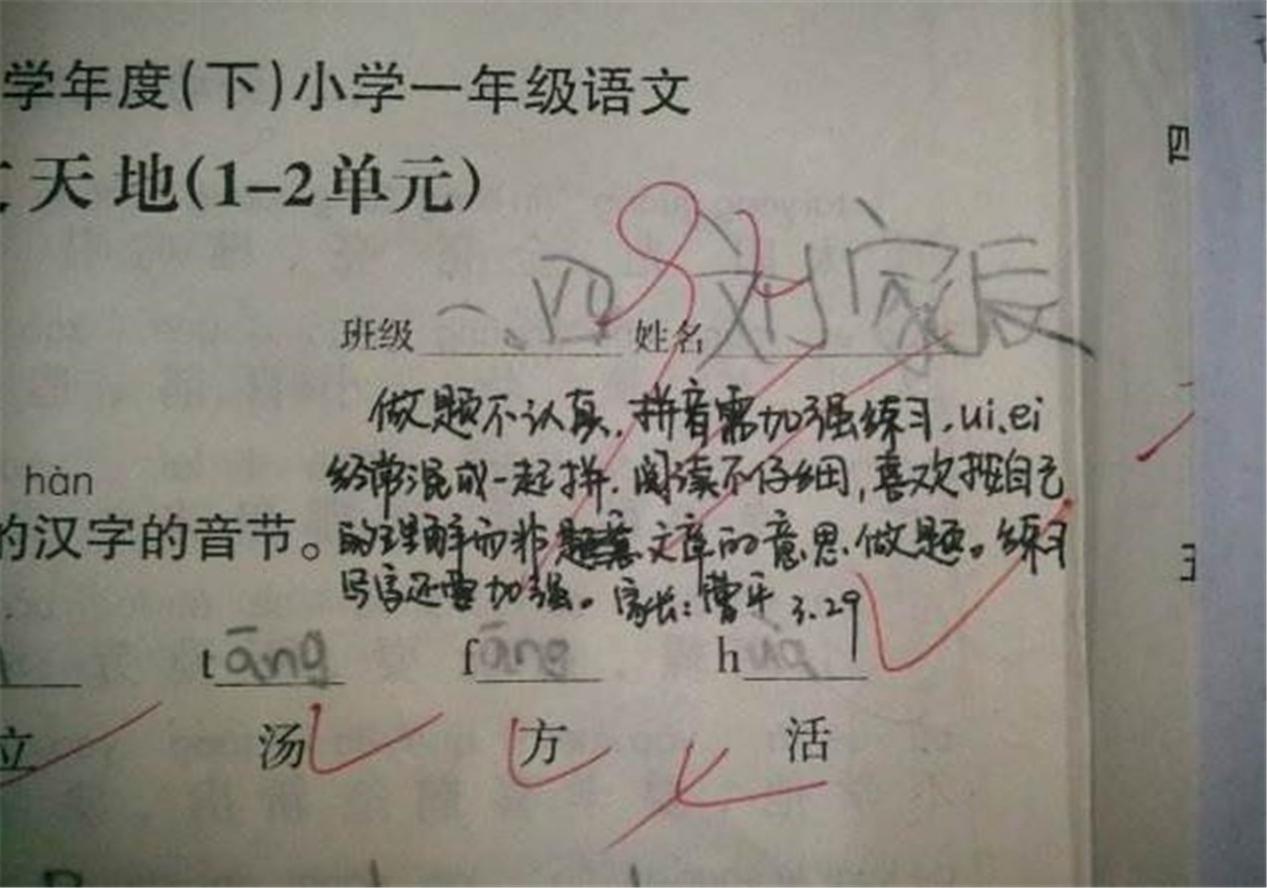 学年度(下)小学一年级语文
天地(1-2单元)
班级 一.四 姓名 刘家辰
做题不认真,拼音需加强练习,ui、ei
经常混成一起拼,阅读不仔细,喜欢按自己
的理解而非文章的意思做题。练习
写字还要加强。家长:曹平 3.29
hàn
的汉字的音节。
tāng fāng h
立 汤 方 活
四